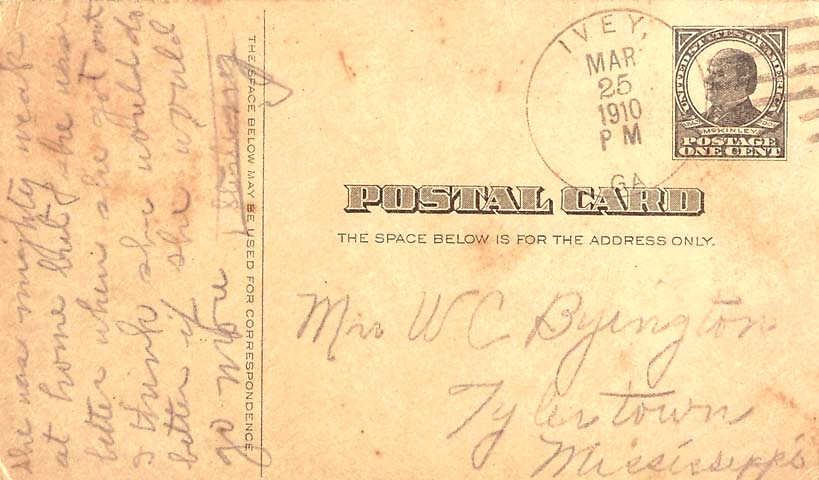 IVEY,
MAR
25
1910
P M
GA
UNITED STATES OF AMERICA
McKINLEY
POSTAGE
ONE CENT
POSTAL CARD
THE SPACE BELOW IS FOR THE ADDRESS ONLY.
Mrs W C Byington
Tylertown
Mississippi
THE SPACE BELOW MAY BE USED FOR CORRESPONDENCE
she was mighty weak
at home that she was
better when she got out
I think she would do
better if she would
go more